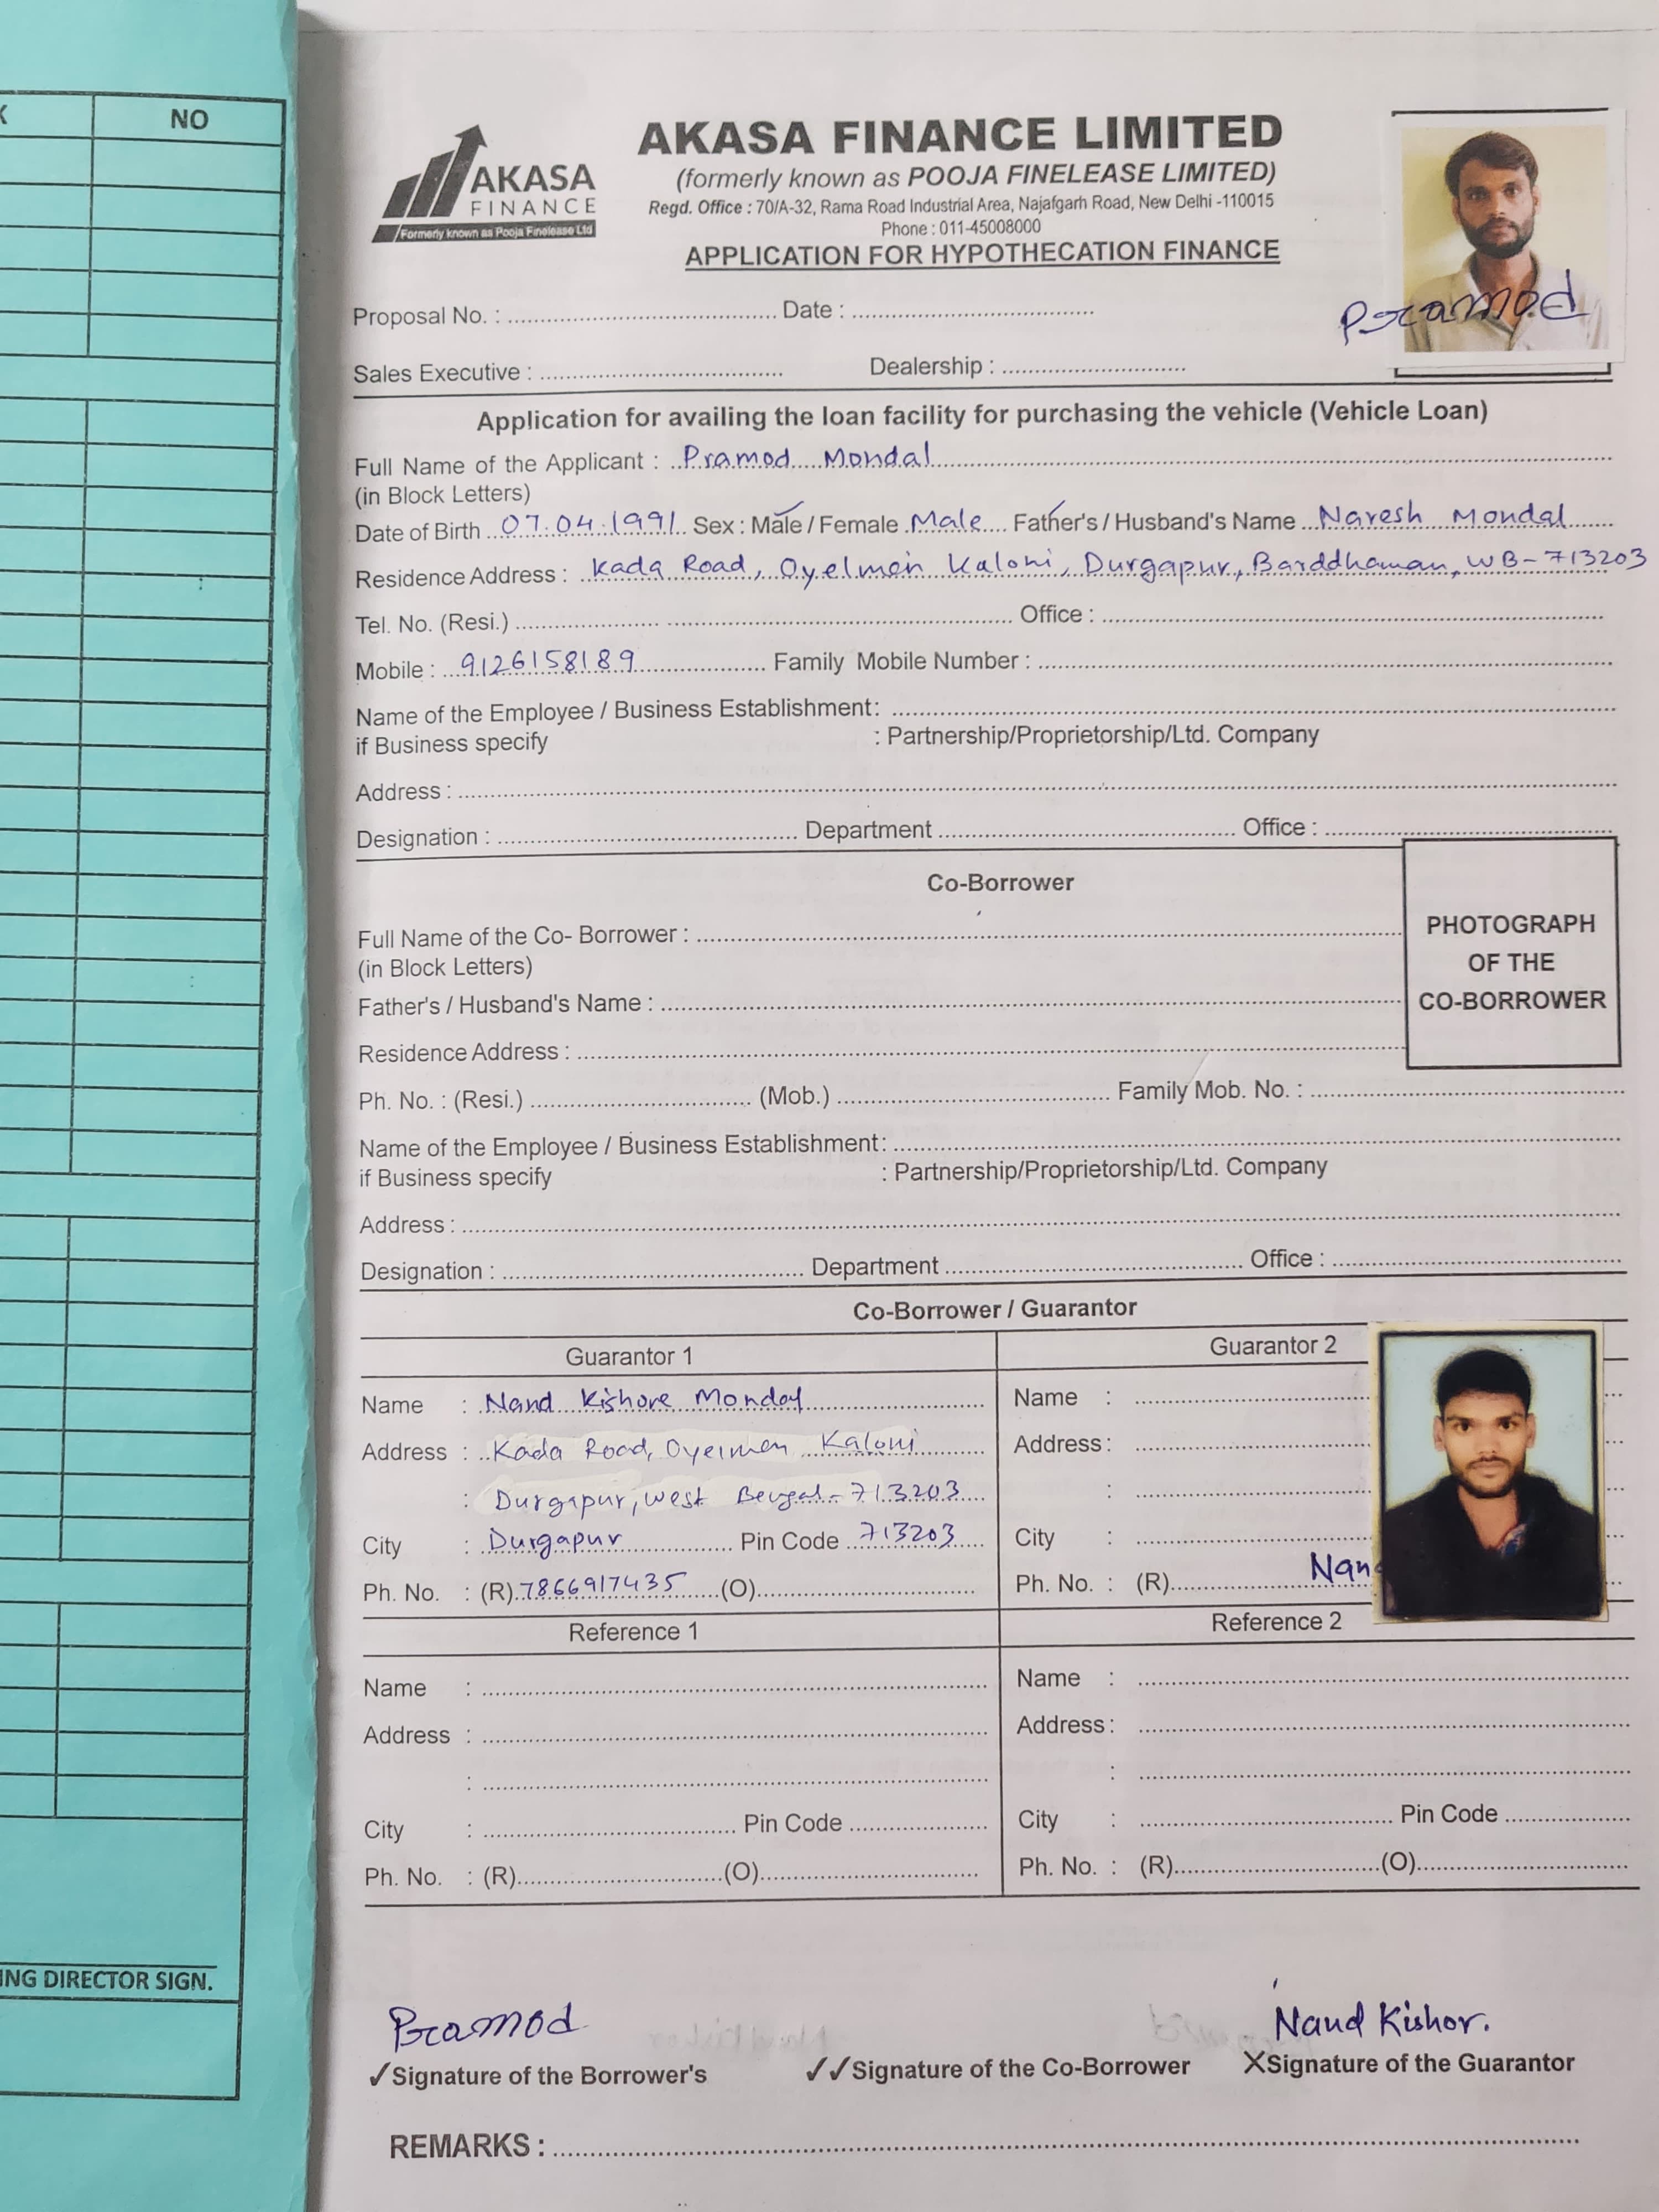 K NO
AKASA
FINANCE
Formerly known as Pooja Finelease Ltd
AKASA FINANCE LIMITED
(formerly known as POOJA FINELEASE LIMITED)
Regd. Office : 70/A-32, Rama Road Industrial Area, Najafgarh Road, New Delhi -110015
Phone : 011-45008000
APPLICATION FOR HYPOTHECATION FINANCE
Pramod
Proposal No. : Date :
Sales Executive : Dealership :
Application for availing the loan facility for purchasing the vehicle (Vehicle Loan)
Full Name of the Applicant : Pramod Mondal
(in Block Letters)
Date of Birth 07.04.1991 Sex : Male / Female Male Father's / Husband's Name Naresh Mondal
Residence Address : Kada Road, Oyelmen Kaloni, Durgapur, Barddhaman, WB-713203
Tel. No. (Resi.) Office :
Mobile : 9126158189 Family Mobile Number :
Name of the Employee / Business Establishment:
if Business specify : Partnership/Proprietorship/Ltd. Company
Address :
Designation : Department Office :
Co-Borrower
PHOTOGRAPH
OF THE
CO-BORROWER
Full Name of the Co- Borrower :
(in Block Letters)
Father's / Husband's Name :
Residence Address :
Ph. No. : (Resi.) (Mob.) Family Mob. No. :
Name of the Employee / Business Establishment:
if Business specify : Partnership/Proprietorship/Ltd. Company
Address :
Designation : Department Office :
Co-Borrower / Guarantor
Guarantor 1 Guarantor 2
Name : Nand Kishore Mondal Name :
Address : Kada Road, Oyelmen Kaloni Address :
: Durgapur, West Bengal-713203 :
City : Durgapur Pin Code 713203 City :
Ph. No. : (R) 7866917435 (O) Ph. No. : (R) Nan
Reference 1 Reference 2
Name : Name :
Address : Address :
: :
City : Pin Code City : Pin Code
Ph. No. : (R) (O) Ph. No. : (R) (O)
ING DIRECTOR SIGN.
Pramod Nand Kishor.
✓Signature of the Borrower's ✓✓Signature of the Co-Borrower XSignature of the Guarantor
REMARKS :